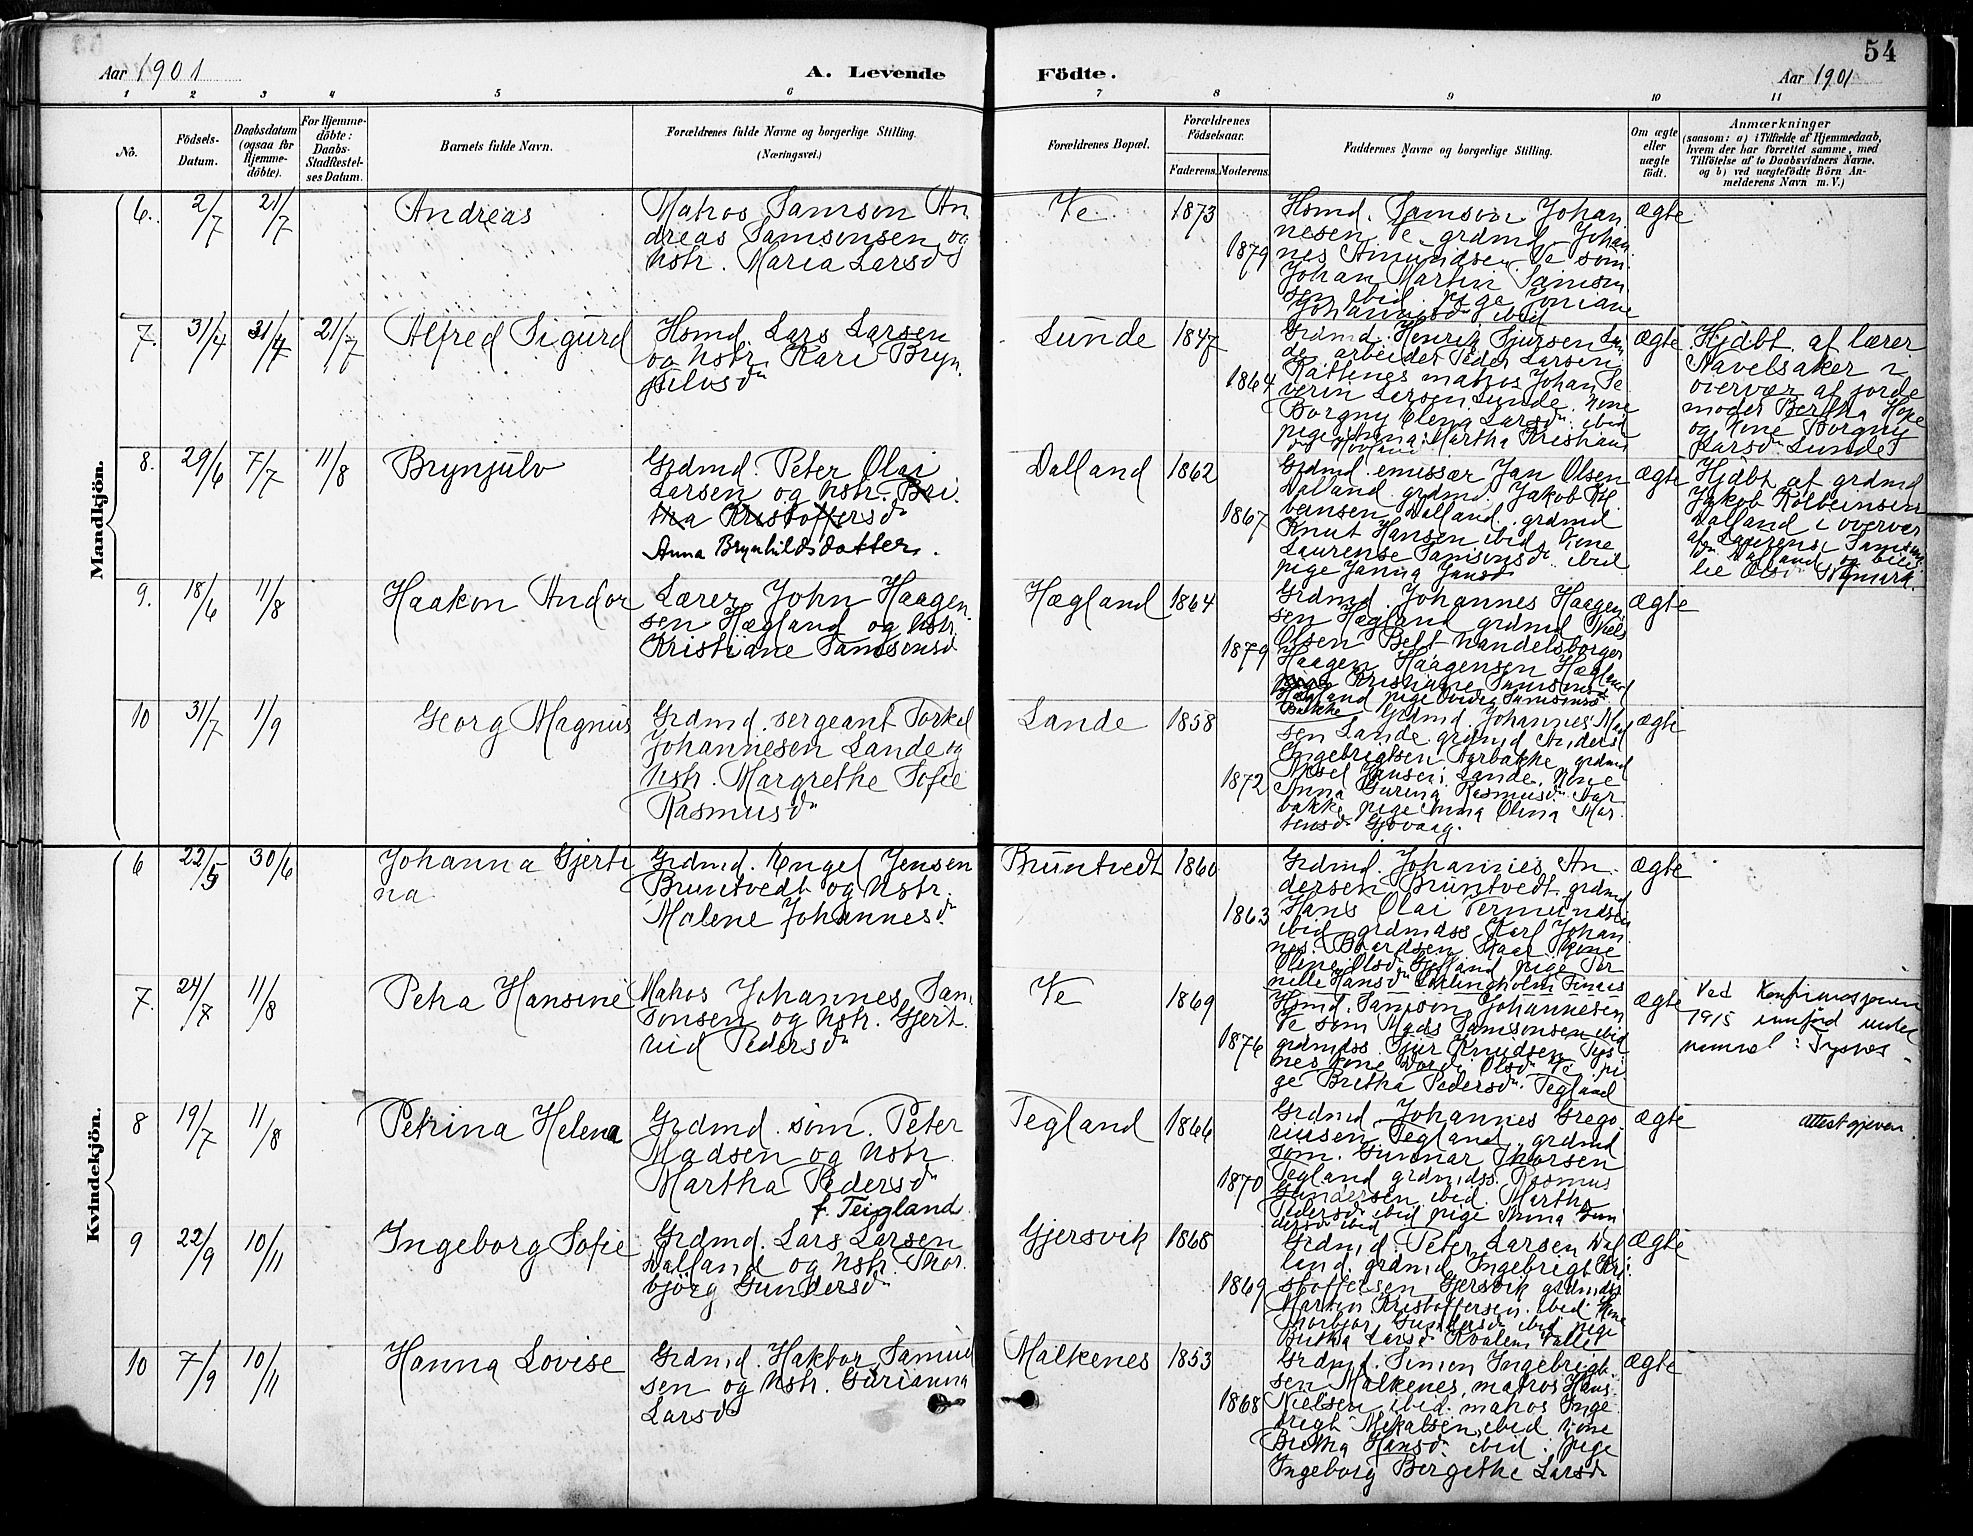 54
Aar 1901
A. Levende
Födte.
Aar 1901
1 2 3 4 5 6 7 8 9 10 11
No.
Födsels-
Datum.
Daabsdatum
(ogsaa for
Hjemme-
döbte).
For Hjemme-
döbte:
Daabs-
Stadfæstel-
ses Datum.
Barnets fulde Navn.
Forældrenes fulde Navne og borgerlige Stilling.
(Næringsvei.)
Forældrenes Bopæl.
Forældrenes
Födselsaar.
Faderens. Moderens.
Faddernes Navne og borgerlige Stilling.
Om ægte
eller
uægte
födt.
Anmærkninger
(saasom: a) i Tilfælde af Hjemmedaab,
hvem der har forrettet samme, med
Tilföielse af to Daabsvidners Navne,
og b) ved uægtefödte Börn An-
melderens Navn m. V.)
Mandkjön.
6. 2/7 21/7
Andreas
Matros Samson An
dreas Samsonsen og
hstr. Maria Larsd
Ve
1873
1879
Hsmd. Samson Johan
nesen Ve grdmd Johan
nes Amundsen Ve som.
Johan Martin Samson
sen ibid pige Joriane
Johannesd ibid
ægte
7. 31/4 31/4 21/7
Alfred Sigurd
Hsmd. Lars Larsen
og hstr. Kari Bryn
julvsdr
Lunde
1847
1864
Grdmd. Henrik Sjursen Lun
de arbeider Peder Larsen
matros Johan Se
verin Larsen Lunde. kone
Borgny Elena Larsd ibid
pige Anna Martha Kristians
d Hovland
ægte
Hjdbt. af lærer
Navelsaker i
overvær af jorde
moder Bertha Hope
og kone Borgny
Larsd Lunde
8. 29/6 7/7 11/8
Brynjulv
Grdmd. Peter Olai
Larsen og hstr. Bri
tha Kristoffersdr
Anna Brynhildsdotter.
Dalland
1862
1867
Grdmd. emissær Jan Olsen
Dalland grdmd. Jakob Kol
bensen Dalland. grdmd
Knut Hansen ibid kone
Laurense Samsonsd ibid
pige Janna Jansd
ægte
Hjdbt af grdmd
Jakob Kolbeinsen
Dalland i overvær
af Laurense Samsons
dr Dalland og
Olsdr Nymark.
9. 18/6 11/8
Haakon Andor
Lærer John Haagen
sen Hægland og hstr
Kristiane Samsonsd
Hægland
1864
1879
Grdmd. Johannes Haagen
sen Hægland grdmd Niels
Olsen Belt handelsborger
Haagen Haagensen Hægland
Kristiane Samsonsd
Hægland pige Samsonsd
Bakke
ægte
10 31/7 1/9
Georg Magnus
Grdmd. sergeant Torkel
Johannesen Lande og
hstr. Margrethe Sofie
Rasmusdr
Lande
1858
1872
Grdmd. Johannes
sen Lande grdmd Anders
Ingebrigtsen Aarbakke grdmd
Aksel Jansen Lande. kone
Anna Gurina Rasmusdr Aar
bakke pige Anna Olina Mor
tensd Gjovaag.
ægte
Kvindekjön.
6 22/5 30/6
Johanna Gjerti
na
Grdmd. Engel Jensen
Bruntvedt og hstr.
Malene Johannesdr
Bruntvedt
1860
1863
Grdmd. Johannes An
dersen Bruntvedt. grdmd
Hans Olai Vermundsen
ibid grdmdss Karl Johan
nes Baardsen kone
Olina Olsd pige Per
nille Hansd Finnes
ægte
7. 24/7 11/8
Petra Hansine
Matros Johannes Sam
sonsen og hstr. Gjert
rud Pedersdr
Ve
1869
1876
Hsmd. Samson Johannesen
Ve som Mads Samsonsen ibid
grdmdss. Sjur Knudsen Tys
nes kone Olsdr Ve pi
ge Britha Pedersdr Tegland
ægte
Ved Konfirmasjonen
1915 innförd under
namnet: Tysnes
8 19/7 11/8
Petrina Helena
Grdmd. som. Peter
Madsen og hstr
Martha Pedersdr
f. Teigland
Tegland
1866
1870
Grdmd. Johannes Grego
riusen Tegland grdmd
som. Gunnar Thorsen
Tegland grdmdss. Rasmus
Gundersen ibid. Martha
Pedersd ibid pige Anna Gun
dersd ibid
ægte
attest gjeven
9 22/9 10/11
Ingeborg Sofie
Grdmd. Lars Larsen
Dalland og hstr. Thor
björg Gundersdr
Gjersvik
1868
1869
Grdmd. Peter Larsen Dal
land. grdmd Ingebrigt Kri
stoffersen Gjersvik grdmdss
Martin Kristoffersen ibid kone
Thorbjor Gundersd ibid pige
Britha Larsd
ægte
10 7/9 10/11
Hanna Lovise
Grdmd. Hakbor Samuel
sen og hstr. Gurianna
Larsd
Malkenes
1853
1868
Grdmd. Simon Ingebrigt
sen Malkenes, matros Hans
Nielsen ibid. matros Inge
brigt Mikalsen ibid kone
Britha Hansd ibid. pige
Ingeborg Bergithe Larsdr
ægte